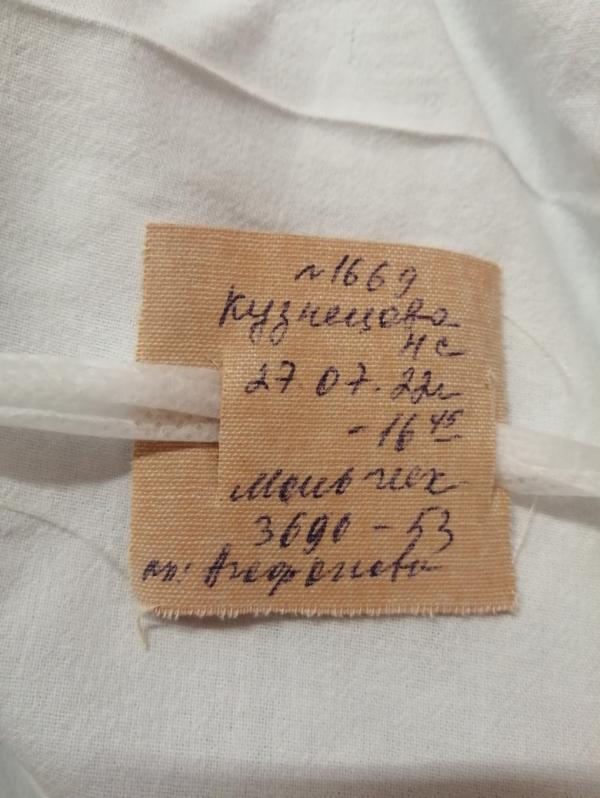 №1669
Кузнецова
НС
27.07.22г
- 16 45
Мальчик
3690 - 53
пр: Агафонова